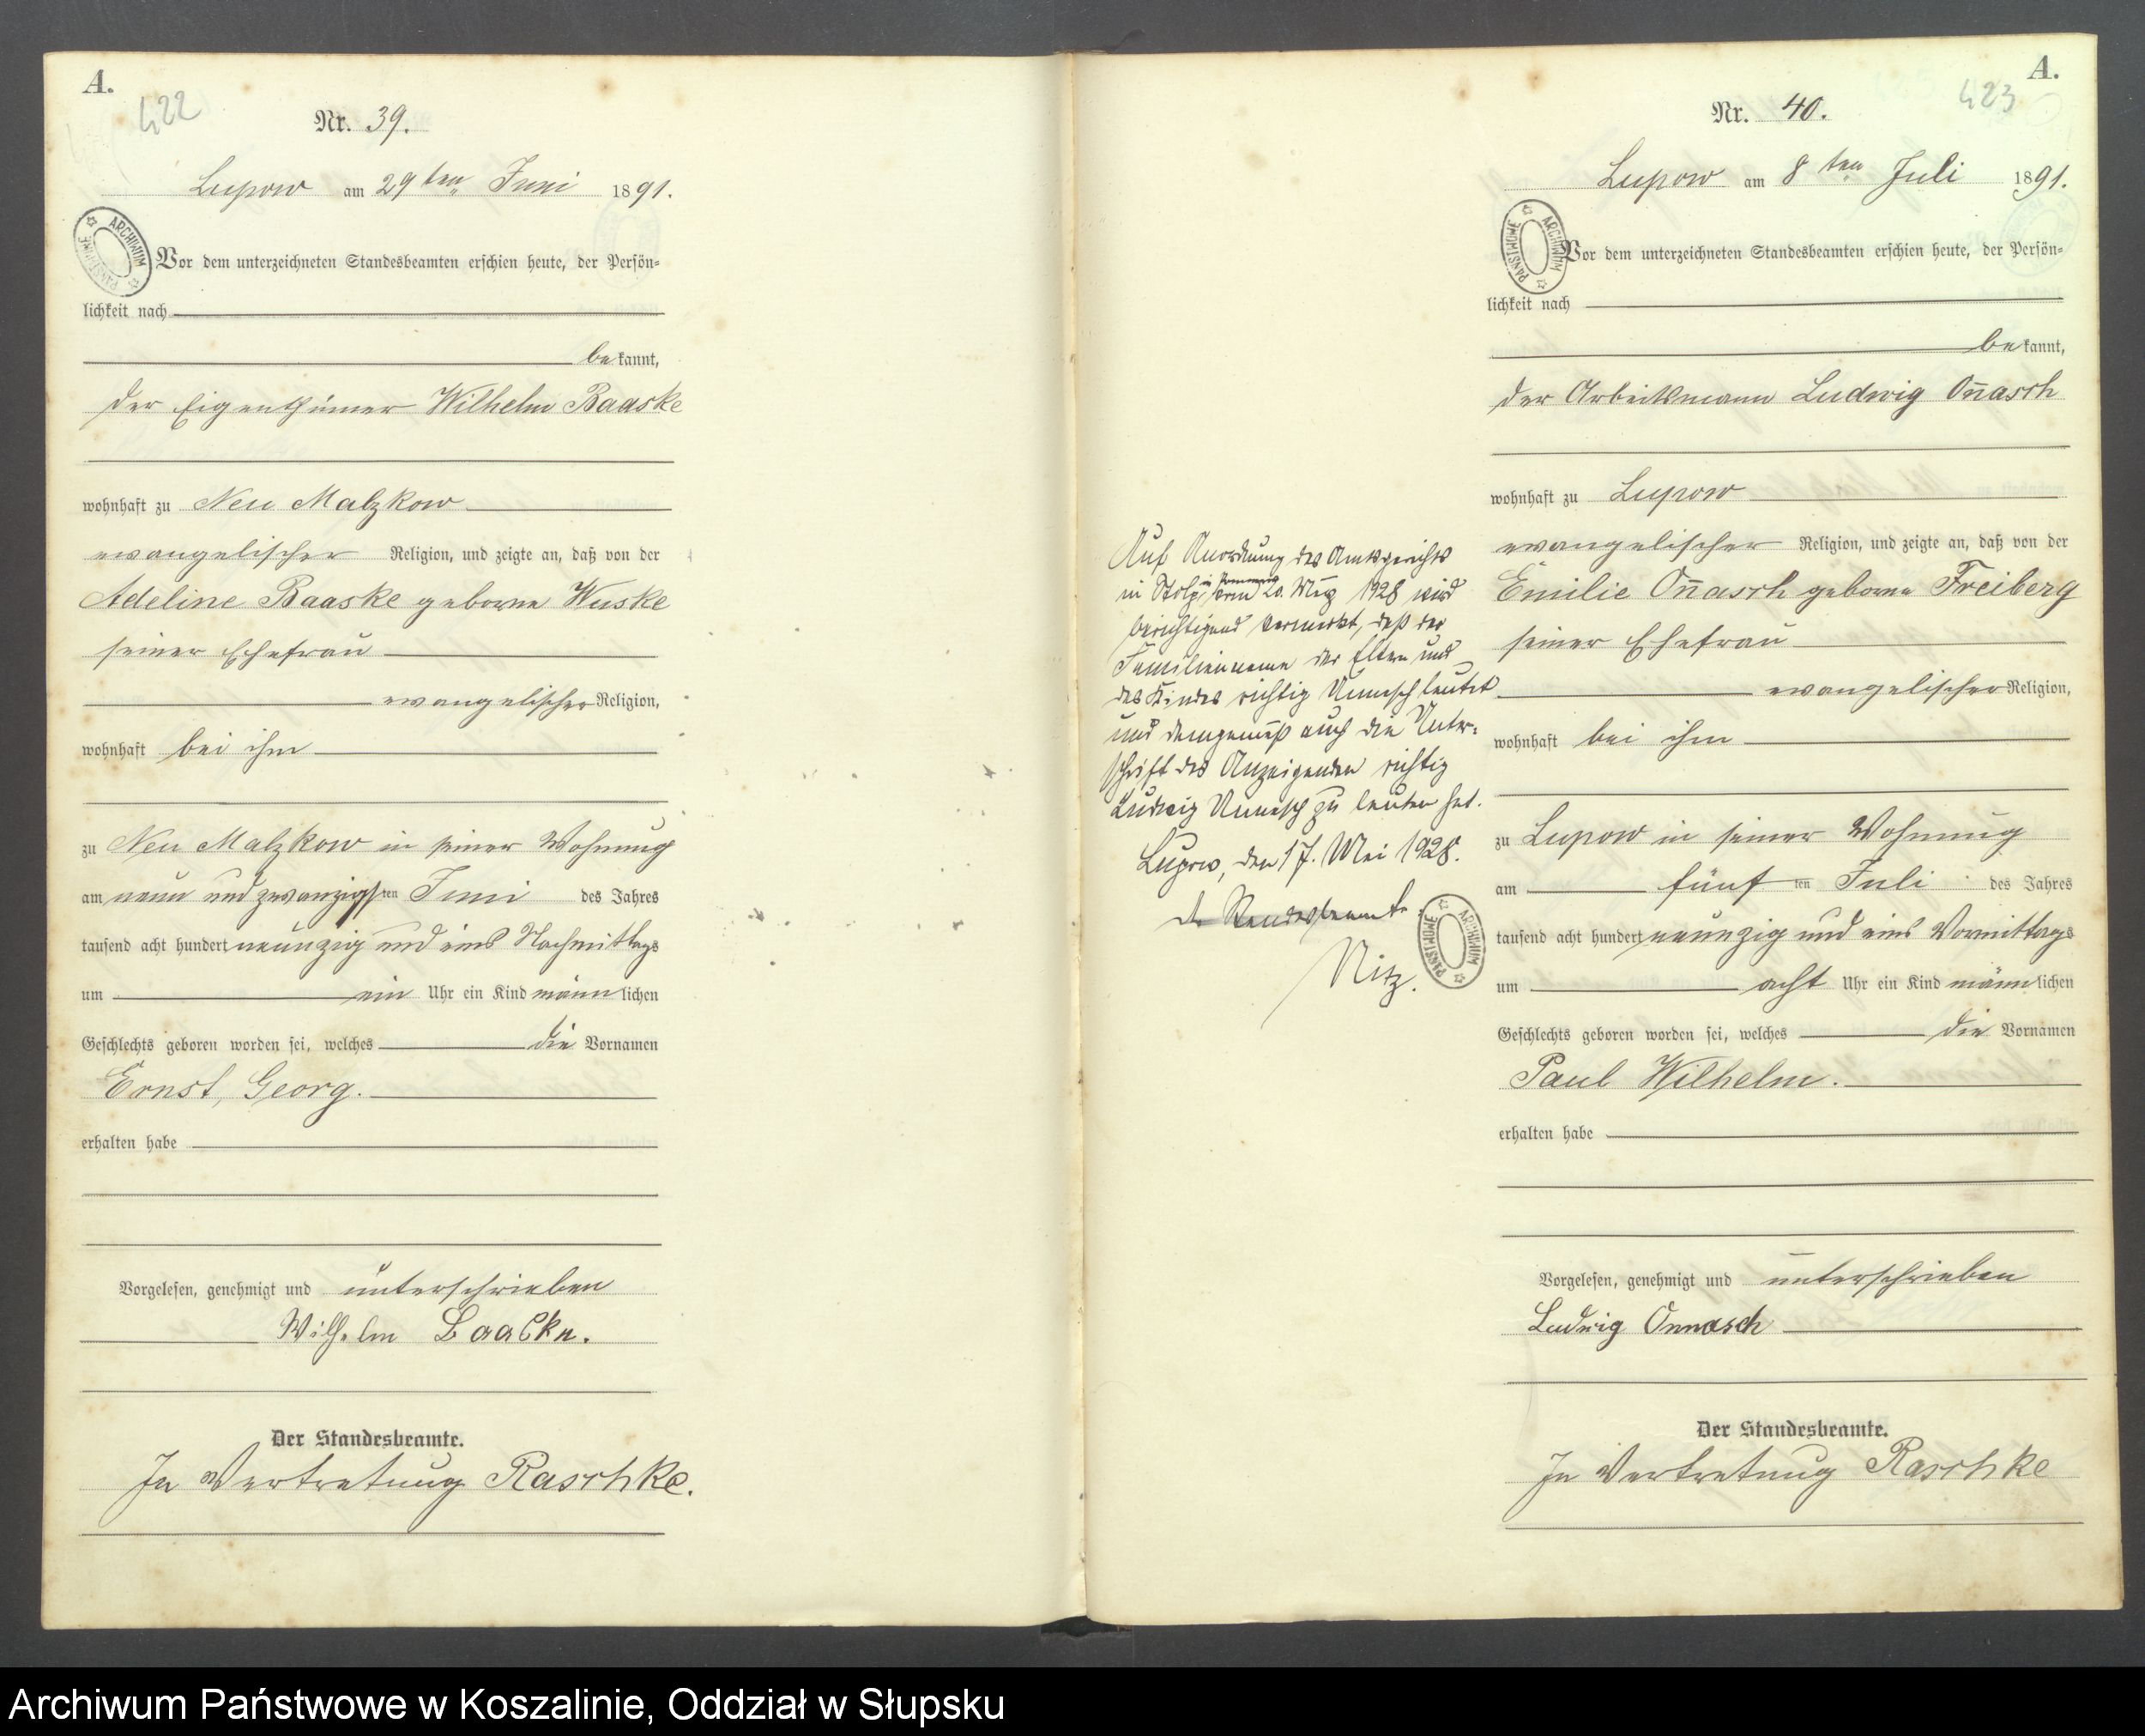 A.
422
Nr. 39.
Lupow am 29ten Juni 1891.
ARCHIWUM PAŃSTWOWE
Vor dem unterzeichneten Standesbeamten erschien heute, der Persön-
lichkeit nach
bekannt,
der Eigenthümer Wilhelm Baaske
wohnhaft zu Neu Malzkow
evangelischer Religion, und zeigte an, daß von der
Adeline Baaske geborne Wuske
seiner Ehefrau
evangelischer Religion,
wohnhaft bei ihm
zu Neu Malzkow in seiner Wohnung
am neun und zwanzigsten Juni des Jahres
tausend acht hundert neunzig und eins Nachmittags
um ein Uhr ein Kind männlichen
Geschlechts geboren worden sei, welches die Vornamen
Ernst, Georg.
erhalten habe
Vorgelesen, genehmigt und unterschrieben
Wilhelm Baaske.
Der Standesbeamte.
In Vertretung Raschke.
A.
423
Nr. 40.
Lupow am 8ten Juli 1891.
ARCHIWUM PAŃSTWOWE
Vor dem unterzeichneten Standesbeamten erschien heute, der Persön-
lichkeit nach
bekannt,
der Arbeitsmann Ludwig On̄asch
wohnhaft zu Lupow
evangelischer Religion, und zeigte an, daß von der
Emilie On̄asch geborne Freiberg
seiner Ehefrau
evangelischer Religion,
wohnhaft bei ihm
zu Lupow in seiner Wohnung
am fünften Juli des Jahres
tausend acht hundert neunzig und eins Vormittags
um acht Uhr ein Kind männlichen
Geschlechts geboren worden sei, welches die Vornamen
Paul Wilhelm.
erhalten habe
Vorgelesen, genehmigt und unterschrieben
Ludwig Onnasch
Der Standesbeamte.
In Vertretung Raschke
Auf Anordnung des Amtsgerichts
in Stolp in Pommern vom 20. März 1928 wird
berichtigend vermerkt, daß der
Familienname der Eltern und
des Kindes richtig Unnasch lautet
und demgemäß auch die Unter-
schrift des Anzeigenden richtig
Ludwig Unnasch zu lauten hat.
Lupow, den 17. Mai 1928.
Der Standesbeamte.
Nitz.
ARCHIWUM PAŃSTWOWE
Archiwum Państwowe w Koszalinie, Oddział w Słupsku